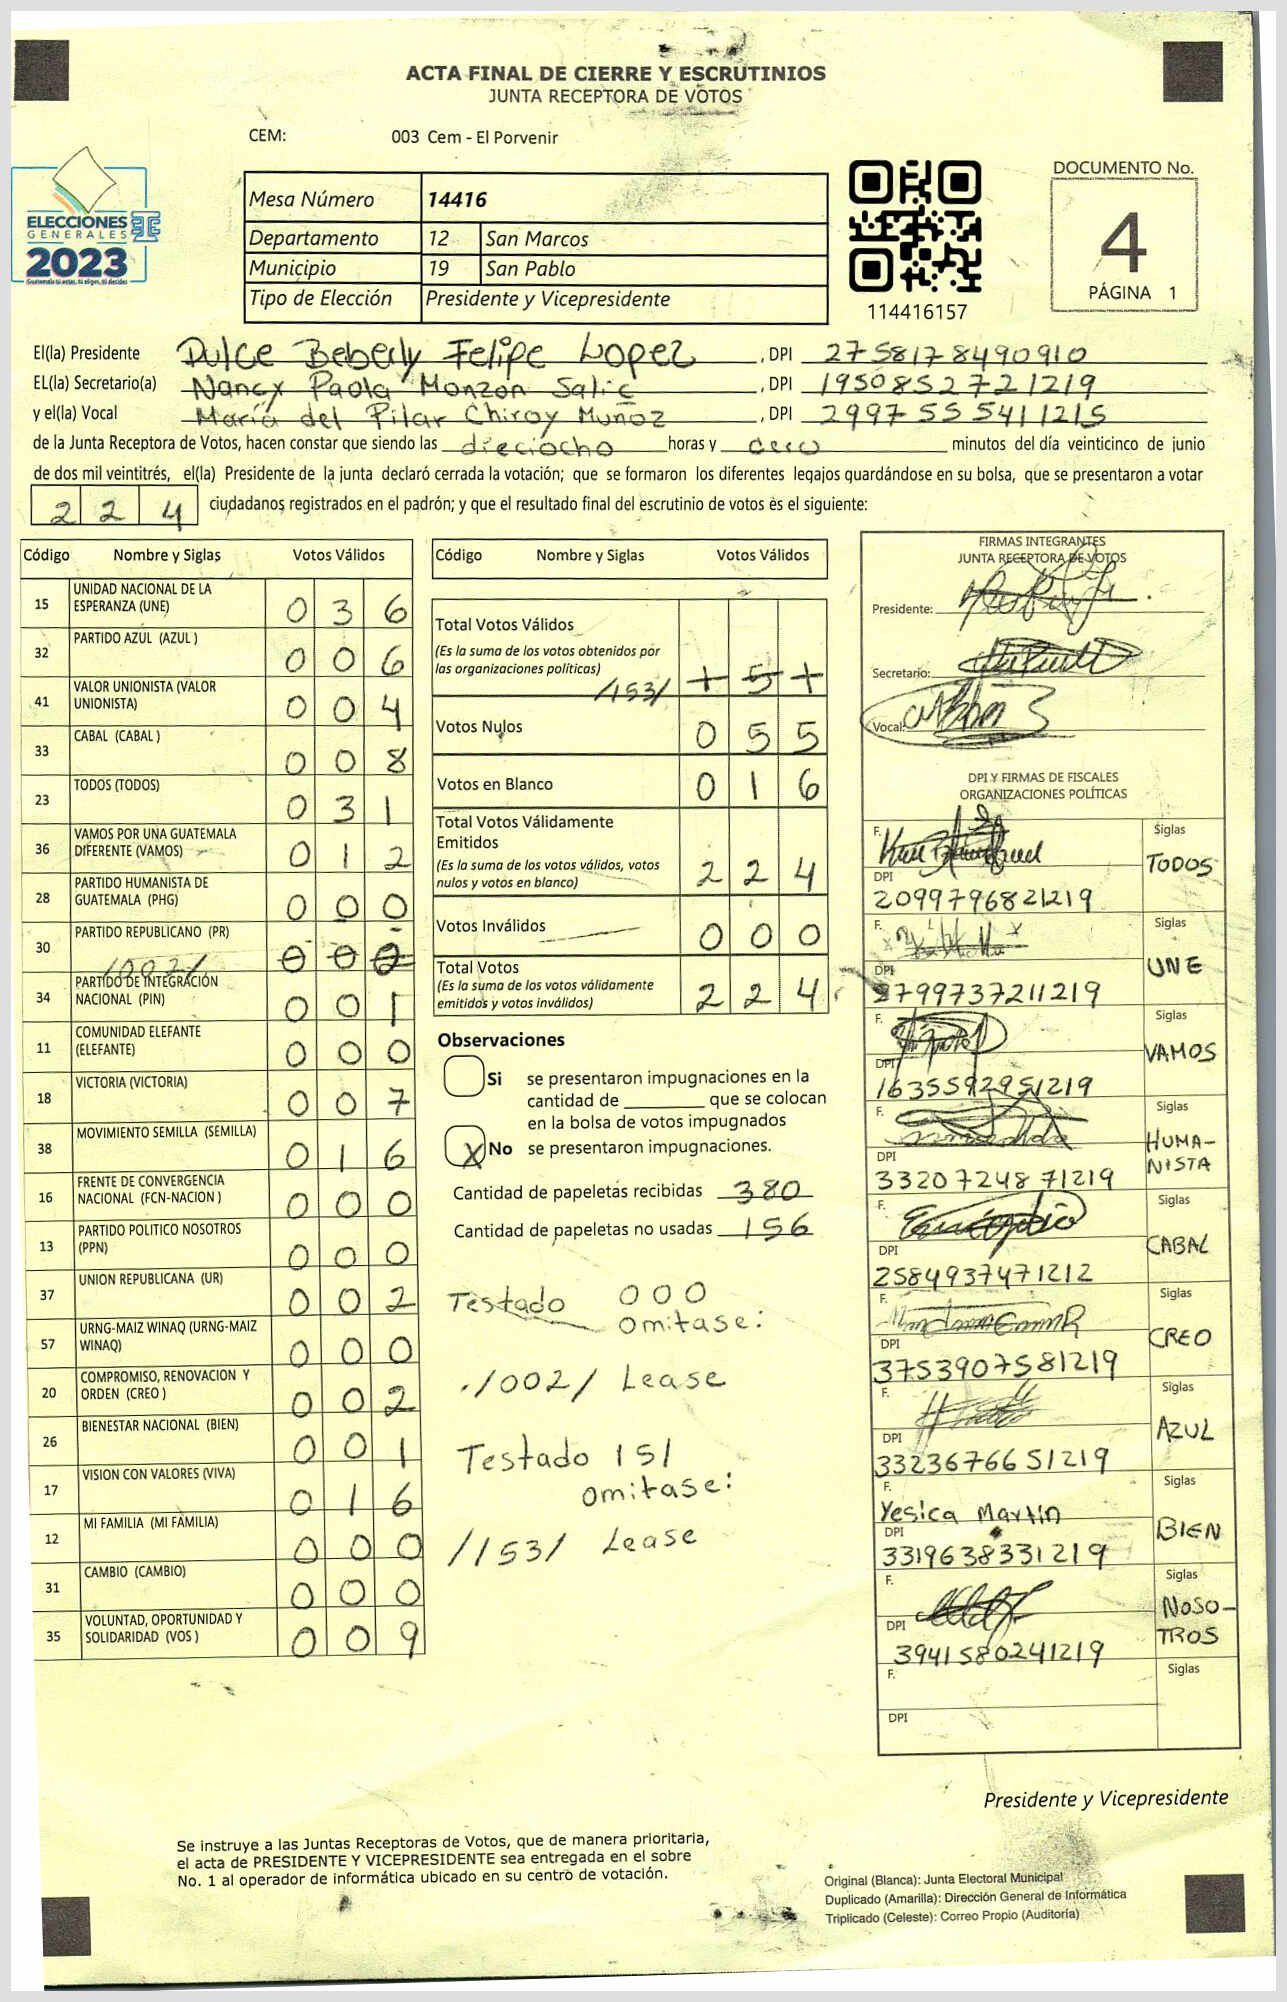 ACTA FINAL DE CIERRE Y ESCRUTINIOS
JUNTA RECEPTORA DE VOTOS
CEM: 003 Cem - El Porvenir
ELECCIONES
GENERALES
2023
Mesa Número 14416
Departamento 12 San Marcos
Municipio 19 San Pablo
Tipo de Elección Presidente y Vicepresidente
114416157
DOCUMENTO No.
4
PÁGINA 1
El(la) Presidente Dulce Beberly Felipe Lopez, DPI 2758178490910
EL(la) Secretario(a) Nancy Paola Monzon Salic, DPI 1950852721219
y el(la) Vocal María del Pilar Chiroy Muñoz, DPI 2997555411215
de la Junta Receptora de Votos, hacen constar que siendo las dieciocho horas y cero minutos del día veinticinco de junio
de dos mil veintitrés, el(la) Presidente de la junta declaró cerrada la votación; que se formaron los diferentes legajos guardándose en su bolsa, que se presentaron a votar
224 ciudadanos registrados en el padrón; y que el resultado final del escrutinio de votos es el siguiente:
Código Nombre y Siglas Votos Válidos
15 UNIDAD NACIONAL DE LA
ESPERANZA (UNE) 0 3 6
32 PARTIDO AZUL (AZUL ) 0 0 6
41 VALOR UNIONISTA (VALOR
UNIONISTA) 0 0 4
33 CABAL (CABAL ) 0 0 8
23 TODOS (TODOS) 0 3 1
36 VAMOS POR UNA GUATEMALA
DIFERENTE (VAMOS) 0 1 2
28 PARTIDO HUMANISTA DE
GUATEMALA (PHG) 0 0 0
30 PARTIDO REPUBLICANO (PR) 0 0 0
/002/
34 PARTIDO DE INTEGRACIÓN
NACIONAL (PIN) 0 0 1
11 COMUNIDAD ELEFANTE
(ELEFANTE) 0 0 0
18 VICTORIA (VICTORIA) 0 0 7
38 MOVIMIENTO SEMILLA (SEMILLA) 0 1 6
16 FRENTE DE CONVERGENCIA
NACIONAL (FCN-NACION ) 0 0 0
13 PARTIDO POLITICO NOSOTROS
(PPN) 0 0 0
37 UNION REPUBLICANA (UR) 0 0 2
57 URNG-MAIZ WINAQ (URNG-MAIZ
WINAQ) 0 0 0
20 COMPROMISO, RENOVACION Y
ORDEN (CREO ) 0 0 2
26 BIENESTAR NACIONAL (BIEN) 0 0 1
17 VISION CON VALORES (VIVA) 0 1 6
12 MI FAMILIA (MI FAMILIA) 0 0 0
31 CAMBIO (CAMBIO) 0 0 0
35 VOLUNTAD, OPORTUNIDAD Y
SOLIDARIDAD (VOS ) 0 0 9
Código Nombre y Siglas Votos Válidos
Total Votos Válidos
(Es la suma de los votos obtenidos por
las organizaciones políticas) 1 5 1
/153/
Votos Nulos 0 5 5
Votos en Blanco 0 1 6
Total Votos Válidamente
Emitidos
(Es la suma de los votos válidos, votos
nulos y votos en blanco) 2 2 4
Votos Inválidos 0 0 0
Total Votos
(Es la suma de los votos válidamente
emitidos y votos inválidos) 2 2 4
Observaciones
Si se presentaron impugnaciones en la
cantidad de ________ que se colocan
en la bolsa de votos impugnados
X No se presentaron impugnaciones.
Cantidad de papeletas recibidas 380
Cantidad de papeletas no usadas 156
Testado 000
omitase:
/002/ Lease
Testado 151
omitase:
/153/ Lease
FIRMAS INTEGRANTES
JUNTA RECEPTORA DE VOTOS
Presidente:
Secretario:
Vocal:
DPI Y FIRMAS DE FISCALES
ORGANIZACIONES POLÍTICAS
F. Siglas
TODOS
DPI
2099796821219
F. Siglas
UNE
DPI
2799737211219
F. Siglas
VAMOS
DPI
1635592951219
F. Siglas
HUMA-
NISTA
DPI
3320724871219
F. Siglas
CABAL
DPI
2584937471212
F. Siglas
CREO
DPI
3753907581219
F. Siglas
AZUL
DPI
3323676651219
F. Siglas
Yesica Martin
BIEN
DPI
3319638331219
F. Siglas
NOSO-
TROS
DPI
3941580241219
F. Siglas
DPI
Presidente y Vicepresidente
Se instruye a las Juntas Receptoras de Votos, que de manera prioritaria,
el acta de PRESIDENTE Y VICEPRESIDENTE sea entregada en el sobre
No. 1 al operador de informática ubicado en su centro de votación.
Original (Blanca): Junta Electoral Municipal
Duplicado (Amarilla): Dirección General de Informática
Triplicado (Celeste): Correo Propio (Auditoría)